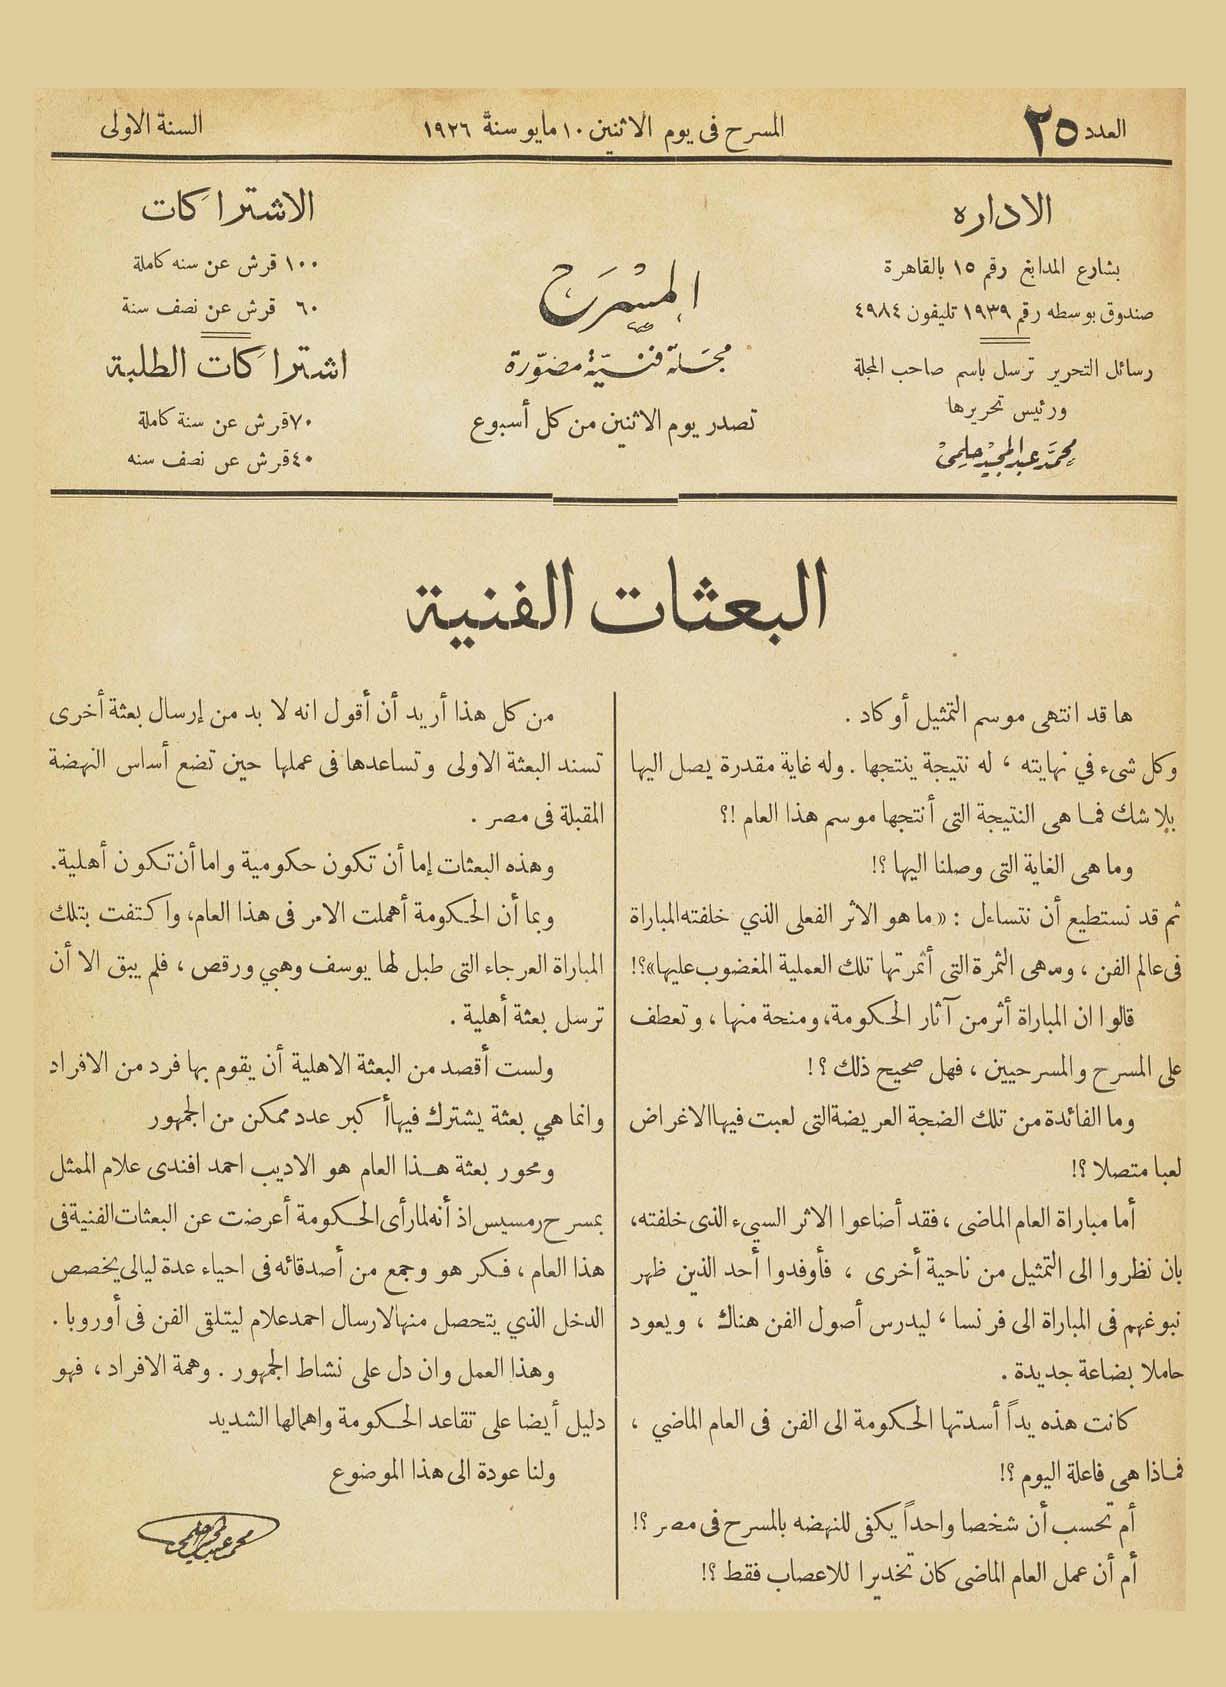 العدد ٢٥
المسرح فى يوم الاثنين ١٠ مايو سنة ١٩٢٦
السنة الاولى
الاداره
بشارع المدابغ رقم ١٥ بالقاهرة
صندوق بوسطه رقم ١٩٣٩ تليفون ٤٩٨٤
رسائل التحرير ترسل باسم صاحب المجلة
ورئيس تحريرها
محمد عبد المجيد حلمى
المسرح
مجلة فنية مصورة
تصدر يوم الاثنين من كل أسبوع
الاشتراكات
١٠٠ قرش عن سنه كاملة
٦٠ قرش عن نصف سنة
اشتراكات الطلبة
٧٠ قرش عن سنة كاملة
٤٠ قرش عن نصف سنه
البعثات الفنية
ها قد انتهى موسم التمثيل أو كاد .
وكل شىء في نهايته ، له نتيجة ينتجها . وله غاية مقدرة يصل اليها
بلا شك فما هى النتيجة التى أنتجها موسم هذا العام !؟
وما هى الغاية التى وصلنا اليها ؟!
ثم قد نستطيع أن نتساءل : « ما هو الاثر الفعلى الذي خلفته المباراة
فى عالم الفن ، وما هى الثمرة التى أثمرتها تلك العملية المغضوب عليها»؟!
قالوا ان المباراة أثر من آثار الحكومة، ومنحة منها ، وتعطف
على المسرح والمسرحيين ، فهل صحيح ذلك ؟!
وما الفائدة من تلك الضجة العريضة التى لعبت فيها الاغراض
لعبا متصلا ؟!
أما مباراة العام الماضى ، فقد أضاعوا الاثر السيء الذى خلفته،
بان نظروا الى التمثيل من ناحية أخرى ، فأوفدوا أحد الذين ظهر
نبوغهم فى المباراة الى فرنسا ، ليدرس أصول الفن هناك ، ويعود
حاملا بضاعة جديدة .
كانت هذه يداً أسدتها الحكومة الى الفن فى العام الماضي ،
فماذا هى فاعلة اليوم ؟!
أم تحسب أن شخصا واحداً يكفى للنهضه بالمسرح فى مصر ؟!
أم أن عمل العام الماضى كان تخديرا للاعصاب فقط ؟!
من كل هذا أريد أن أقول انه لا بد من إرسال بعثة أخرى
تسند البعثة الاولى وتساعدها فى عملها حين تضع أساس النهضة
المقبلة فى مصر .
وهذه البعثات إما أن تكون حكومية واما أن تكون أهلية.
وبما أن الحكومة أهملت الامر فى هذا العام، واكتفت بتلك
المباراة العرجاء التى طبل لها يوسف وهبي ورقص ، فلم يبق الا أن
ترسل بعثة أهلية .
ولست أقصد من البعثة الاهلية أن يقوم بها فرد من الافراد
وانما هي بعثة يشترك فيها أكبر عدد ممكن من الجمهور
ومحور بعثة هذا العام هو الاديب احمد افندى علام الممثل
بمسرح رمسيس اذ أنه لما رأى الحكومة أعرضت عن البعثات الفنية فى
هذا العام ، فكر هو وجمع من أصدقائه فى احياء عدة ليالى يخصص
الدخل الذي يتحصل منها لارسال احمد علام ليتلقى الفن فى أوروبا .
وهذا العمل وان دل على نشاط الجمهور . وهمة الافراد ، فهو
دليل أيضا على تقاعد الحكومة واهمالها الشديد
ولنا عودة الى هذا الموضوع
محمد عبد المجيد حلمى